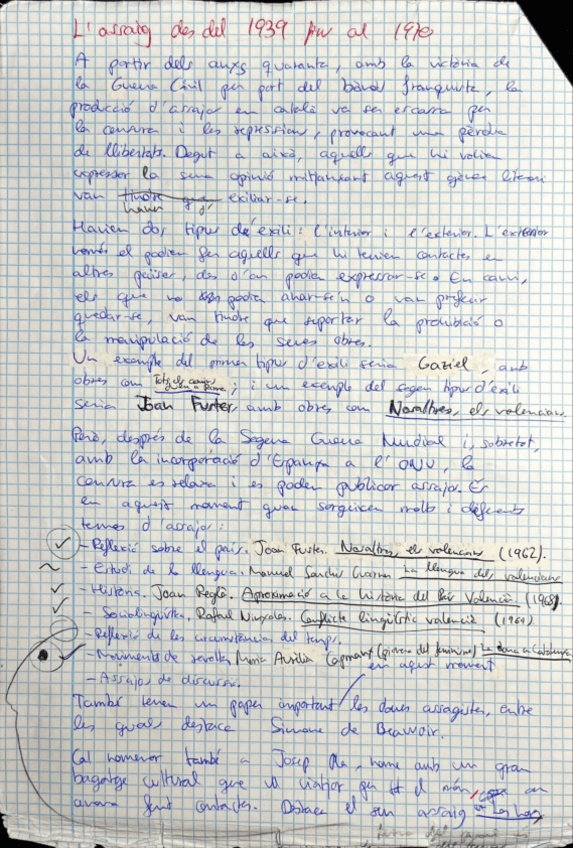 L'assaig des del 1939 fins al 1970
A partir dels anys quaranta, amb la victòria de
la Guerra Civil per part del bàndol franquista, la
producció d'assajos en català va ser escarsa per
la censura i les repressions, provocant una pèrdua
de llibertats. Degut a això, aquells que hi volien
expressar la seva opinió mitjançant aquest gènere literari
van haver d' exiliar-se.
Havien dos tipus d'exili: l'interior i l'exterior. L'exterior
només el podien fer aquells que hi tenien contactes en
altres països, des d'on podien expressar-se. En canvi,
els que no podien anar-se'n o van preferir
quedar-se, van tindre que suportar la prohibició o
la manipulació de les seves obres.
Un exemple del primer tipus d'exili seria Gaziel, amb
obres com Tots els camins duen a Roma; i un exemple del segon tipus d'exili
seria Joan Fuster, amb obres com Nosaltres, els valencians.
Però, després de la Segona Guerra Mundial i, sobretot,
amb la incorporació d'Espanya a l'ONU, la
censura es relaxa i es poden publicar assajos. És
en aquest moment quan sorgeixen molts i diferents
temes d'assajos:
- Reflexió sobre el país. Joan Fuster. Nosaltres, els valencians (1962).
- Estudi de la llengua. Manuel Sanchis Guarner. La llengua dels valencians
- Història. Joan Reglà. Aproximació a la història del País Valencià (1968).
- Sociolingüística. Rafael Ninyoles. Conflicte lingüístic valencià (1969).
- Reflexió de les circumstàncies del temps.
- Moviments de revolta. Maria Aurèlia Capmany (pionera del feminisme) La dona a Catalunya
en aquest moment
- Assajos de discurs.
També tenen un paper important les dones assagistes, entre
les quals destaca Simone de Beauvoir.
Cal nomenar també a Josep Pla, home amb un gran
bagatge cultural que va viatjar per tot el món, on
anava fent contactes. Destaca el seu assaig Les hores